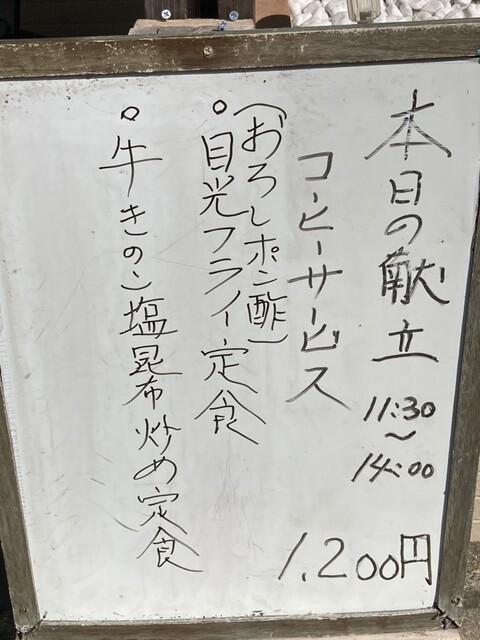 本日の献立
11:30
〜
14:00
コーヒーサービス
1.200円
(おろしポン酢)
○目光フライ定食
○牛きのこ塩昆布炒め定食